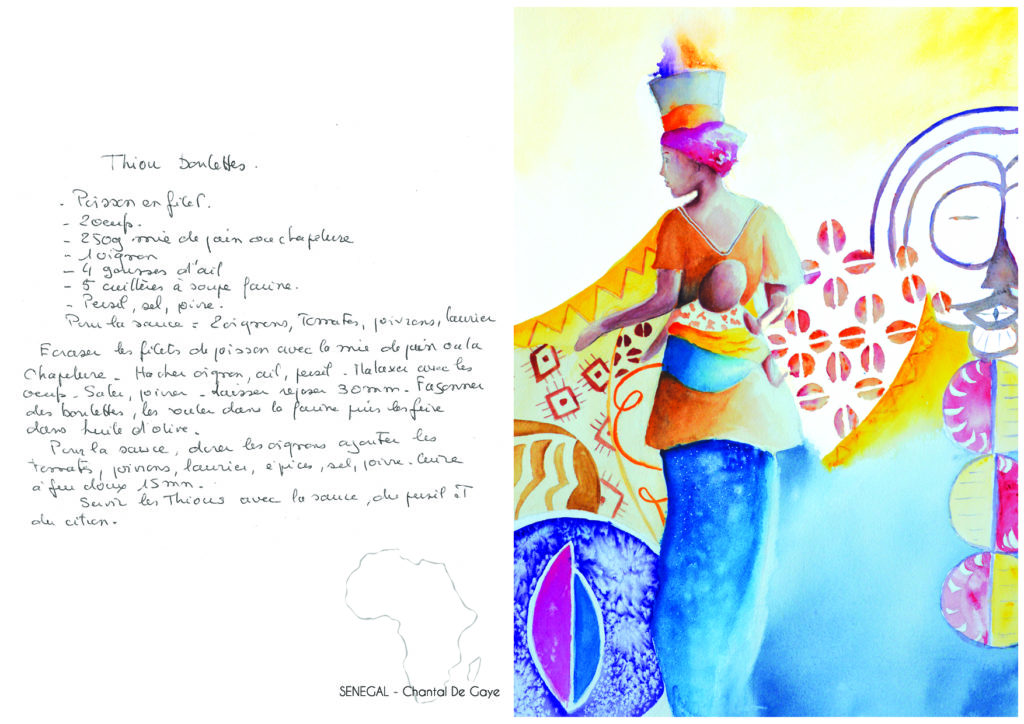 Thiou boulettes.
- Poisson en filet.
- 2 oeufs.
- 250g mie de pain ou chapelure
- 1 oignon
- 4 gousses d'ail
- 5 cuillères à soupe farine.
- Persil, sel, poivre.
Pour la sauce = 2 oignons, tomates, poivrons, laurier
Ecraser les filets de poisson avec la mie de pain ou la
chapelure - Hacher oignon, ail, persil - Malaxer avec les
oeufs - Saler, poivrer - Laisser reposer 30mn - Façonner
des boulettes, les rouler dans la farine puis les frire
dans huile d'olive.
Pour la sauce, dorer les oignons ajouter les
tomates, poivrons, laurier, épices, sel, poivre - Cuire
à feu doux 15mn.
Servir les Thious avec la sauce, du persil et
du citron.
SENEGAL - Chantal De Gaye